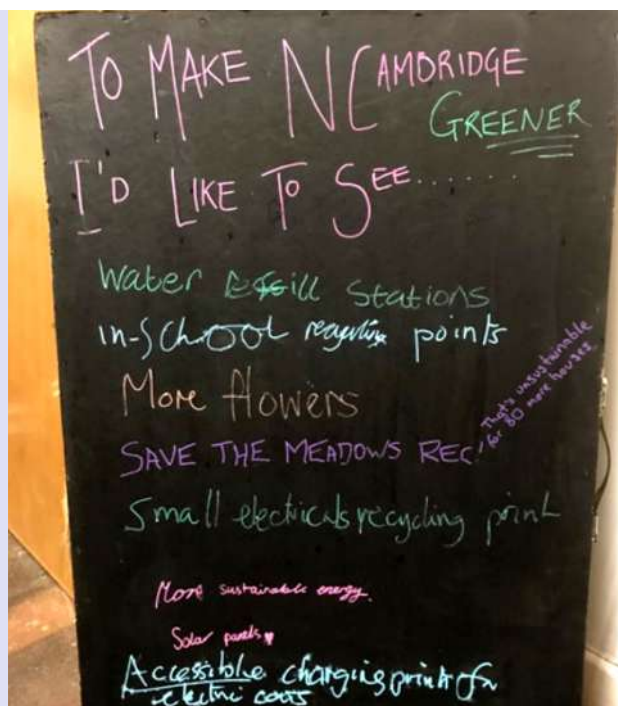 TO MAKE N CAMBRIDGE
GREENER
I'D LIKE TO SEE.......
Water Refill Stations
in-School recycling points
More flowers
SAVE THE MEADOWS REC!
That's unsustainable
for 80 more houses
Small electricals recycling point
More sustainable energy.
Solar panels
Accessible charging points for
electric cars